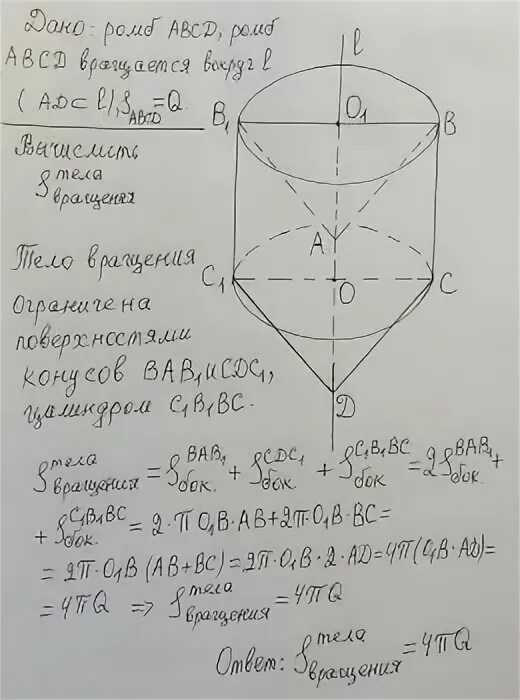 Дано: ромб ABCD, ромб
ABCD вращается вокруг l
(AD⊂l), S_ABCD=Q.
Вычислить
S тела вращения
l
B₁ O₁ B
A
C₁ O C
D
Тело вращения
ограничена
поверхностями
конусов BAB₁ и CDC₁,
цилиндром C₁B₁BC.
S тела вращения = S бок. BAB₁ + S бок. CDC₁ + S бок. C₁B₁BC = 2S бок. BAB₁ +
+ S бок. C₁B₁BC = 2·π O₁B·AB+2π·O₁B·BC=
= 2π·O₁B (AB+BC)=2π·O₁B·2·AD=4π(O₁B·AD)=
= 4πQ ⇒ S тела вращения = 4πQ
Ответ: S тела вращения = 4πQ